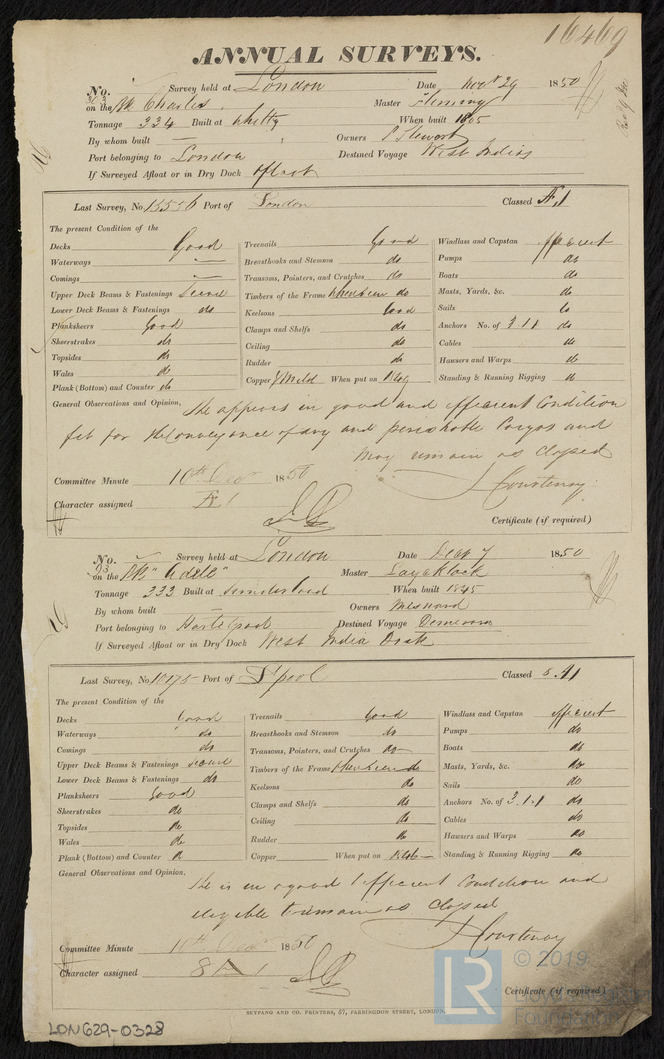 16469
ANNUAL SURVEYS.
No. Survey held at London Date Novr 29 1850
on the Bk Charles Master Fleming
Tonnage 334 Built at Whitby When built 1805
By whom built — Owners Stewart
Port belonging to London Destined Voyage West Indies
If Surveyed Afloat or in Dry Dock afloat
Last Survey, No. 15556 Port of London Classed Æ 1
The present Condition of the
Decks Good Treenails Good Windlass and Capstan efficient
Waterways — Breasthooks and Stemson do Pumps do
Comings — Transoms, Pointers, and Crutches do Boats do
Upper Deck Beams & Fastenings Sound Timbers of the Frame when seen do Masts, Yards, &c. do
Lower Deck Beams & Fastenings do Keelsons Good Sails do
Planksheers Good Clamps and Shelfs do Anchors No. of 3.1.1 do
Sheerstrakes do Ceiling do Cables do
Topsides do Rudder do Hawsers and Warps do
Wales do Copper When put on Standing & Running Rigging do
Plank (Bottom) and Counter do
General Observations and Opinion, She appears in good and efficient Condition
fit for the Conveyance of dry and perishable Cargos and
May remain as Classed
J Courtenay
Committee Minute 10th Decr 1850
Character assigned Æ 1
Certificate (if required)
No. 93 Survey held at London Date Decr 7 1850
on the Bk "Adele" Master Layeklock
Tonnage 333 Built at Sunderland When built 1845
By whom built — Owners Mesnard
Port belonging to Hartlepool Destined Voyage Demerara
If Surveyed Afloat or in Dry Dock West India Dock
Last Survey, No. 10175 Port of L'pool Classed 8 A1
The present Condition of the
Decks Good Treenails Good Windlass and Capstan efficient
Waterways do Breasthooks and Stemson do Pumps do
Comings do Transoms, Pointers, and Crutches do Boats do
Upper Deck Beams & Fastenings Sound Timbers of the Frame when seen do Masts, Yards, &c. do
Lower Deck Beams & Fastenings do Keelsons do Sails do
Planksheers Good Clamps and Shelfs do Anchors No. of 3.1.1 do
Sheerstrakes do Ceiling do Cables do
Topsides do Rudder do Hawsers and Warps do
Wales do Copper When put on Standing & Running Rigging do
Plank (Bottom) and Counter do
General Observations and Opinion, She is in a good & efficient Condition and
eligible to remain as Classed
J Courtenay
Committee Minute 10th Decr 1850
Character assigned 8 A 1
Certificate (if required)
SEYFANG AND CO. PRINTERS, 57, FARRINGDON STREET, LONDON.
LON629-0328
LR © 2019
Foundation